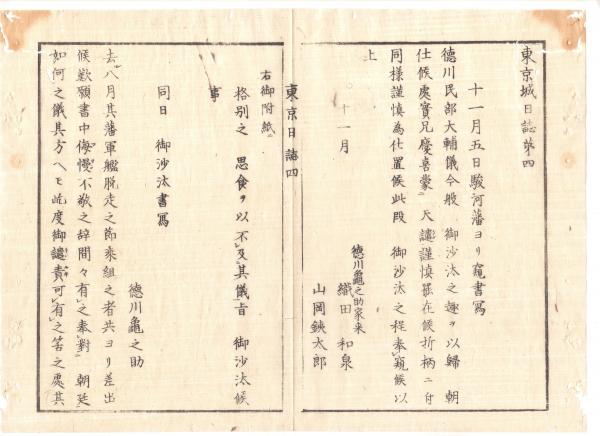 東京城日誌第四
十一月五日駿河藩ヨリ窺書寫
德川民部大輔儀今般 御沙汰之趣ヲ以歸 朝
仕候處實兄慶喜蒙ニ 天譴謹慎罷在候折柄ニ付
同樣謹慎為仕置候此段 御沙汰之程奉窺候以
上
十一月
德川龜之助家来
織田和泉
山岡鉄太郎
東京日誌四
右御附紙ニ
格別之 思食ヲ以不及其儀旨 御沙汰候
事
同日 御沙汰書寫
德川龜之助
去ル八月其藩軍艦脱走之節乘組之者共ヨリ差出
候歎願書中侮慢不敬之辞間々有之奉對 朝廷
如何之儀其方ヘモ屹度御譴責可有之筈之處其